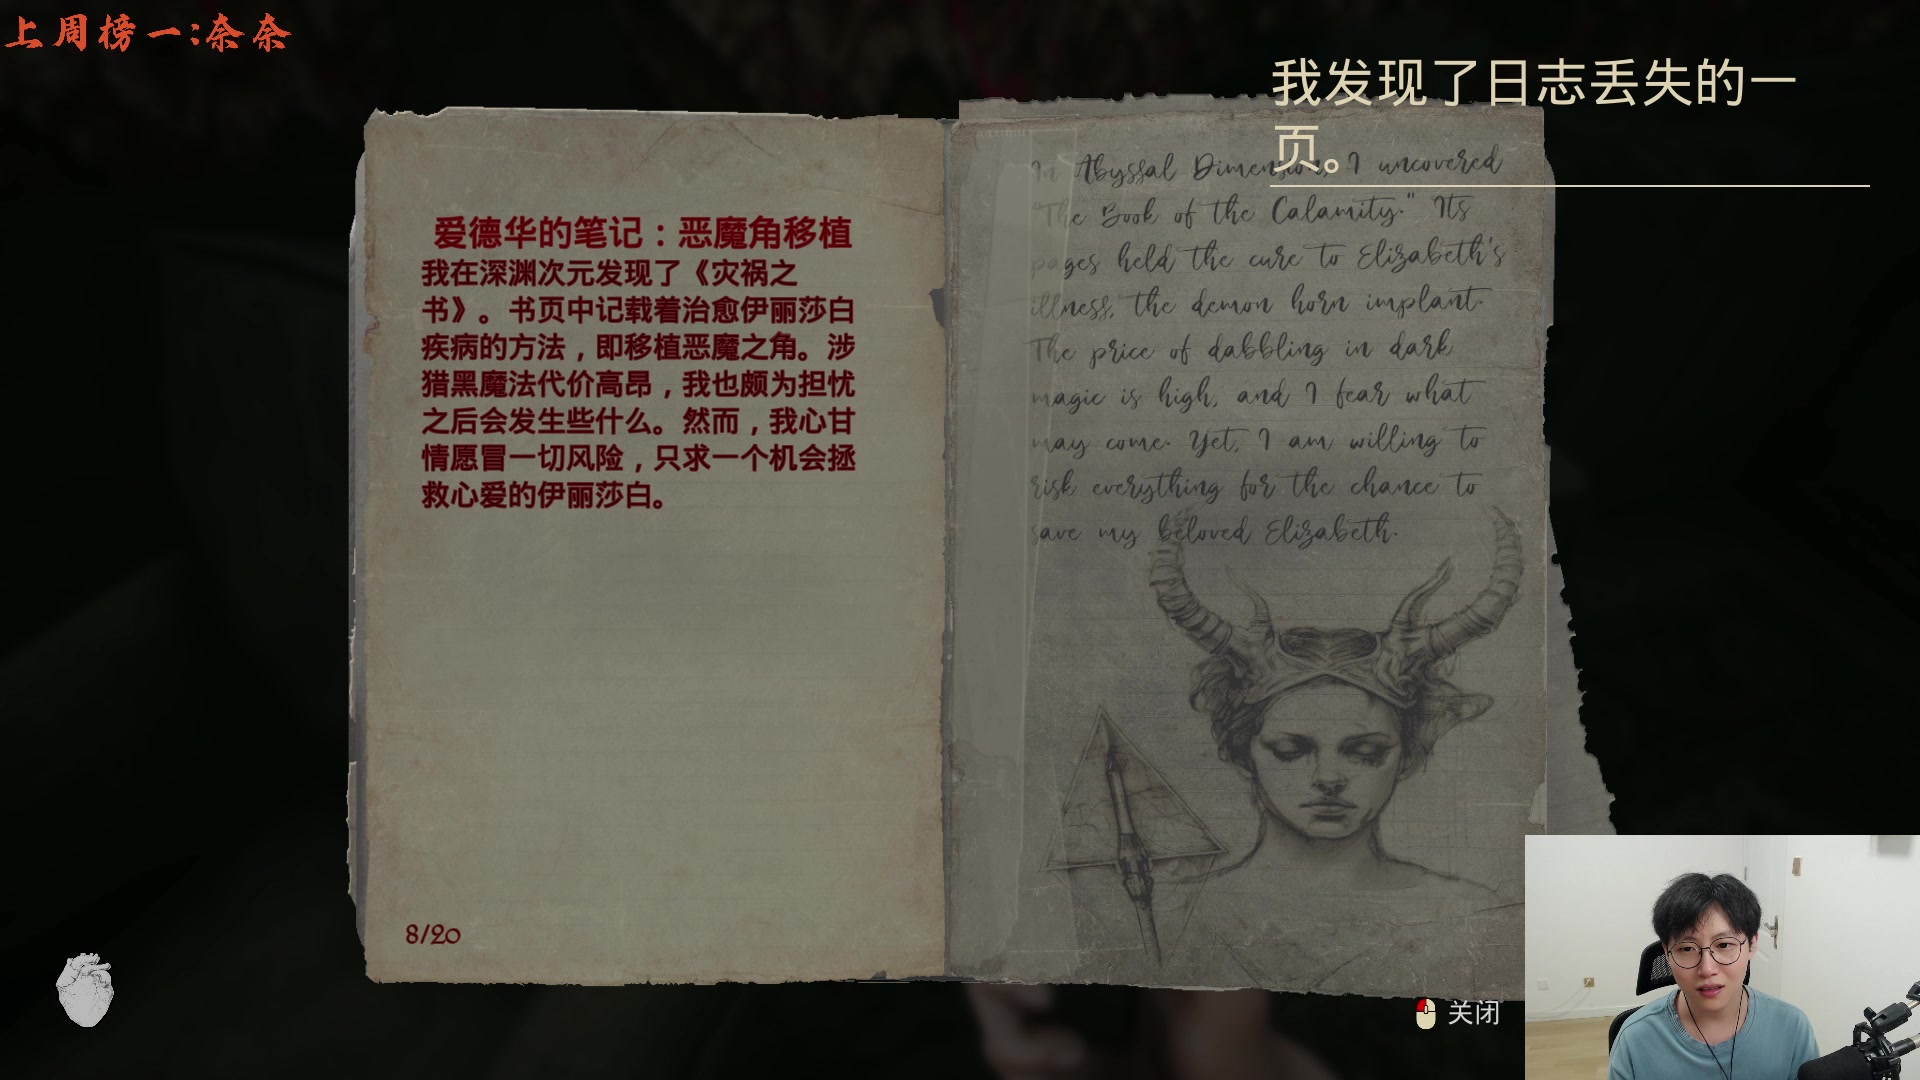 上周榜一:奈奈
我发现了日志丢失的一
页。
爱德华的笔记：恶魔角移植
我在深渊次元发现了《灾祸之
书》。书页中记载着治愈伊丽莎白
疾病的方法，即移植恶魔之角。涉
猎黑魔法代价高昂，我也颇为担忧
之后会发生些什么。然而，我心甘
情愿冒一切风险，只求一个机会拯
救心爱的伊丽莎白。
8/20
In Abyssal Dimensions, I uncovered
"The Book of the Calamity." Its
pages held the cure to Elizabeth's
illness, the demon horn implant.
The price of dabbling in dark
magic is high, and I fear what
may come. Yet, I am willing to
risk everything for the chance to
save my beloved Elizabeth.
关闭